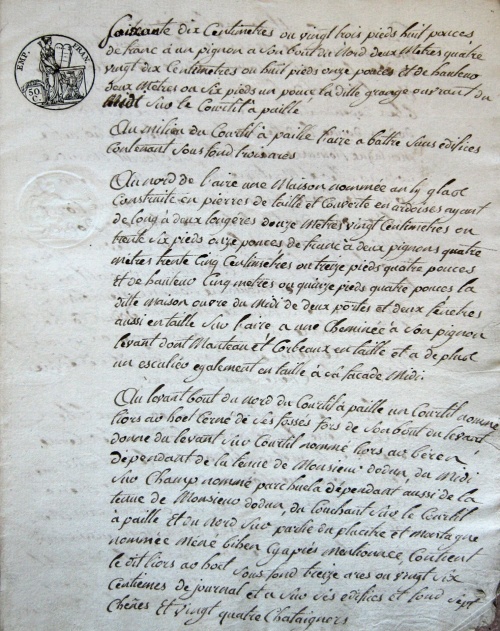 EMP. FRAN.
50 C.
Soixante dix Centimetres ou vingt trois pieds huit pouces
de franc à un pignon a Son bout du Nord deux Metres quatre
vingt dix Centimetres ou huit pieds onze pouces et de hauteur
deux Metres ou Six pieds un pouce la ditte grange ouvrant du
Midi Sur le Courtil à paille
Au milieu du Courtil à paille l'aire a battre Sans edifices
Contenant Sous fond trois ares
Au nord de l'aire une Maison nommée an ty glas
Construite en pierres de taille et Couverte en ardoises ayant
de long à deux longères douze Metres vingt Centimetres ou
trente Six pieds onze pouces de franc à deux pignons quatre
mètres trente Cinq Centimetres ou treize pieds quatre pouces
et de hauteur Cinq metres ou quinze pieds quatre pouces la
ditte maison ouvre du Midi de deux portes et deux fenêtres
aussi en taille Sur l'aire, a une Cheminée à Son pignon
levant dont Manteau et Corbeaux en taille et a de plus
un escalier egalement en taille à sa façade Midi.
Au levant bout du nord du Courtil à paille un Courtil nommé
liors ar hoel Cerné de Ses fosses fors de Son bout du levant
donne du levant Sur Courtil nommé liors ar
dépendant de la tenue de Monsieur dodun, du Midi
Sur Champ nommé parc huela dépendant aussi de la
tenue de Monsieur dodun, du Couchant Sur le Courtil
à paille et du Nord Sur partie du placitre et montagne
nommée Méné bihen Cy après Mentionnée, Contient
le dit liors ar hoel Sous fond treize ares ou vingt Six
Centièmes de journal et a Sur Ses edifices et fond Sept
Chênes et vingt quatre Chataigners